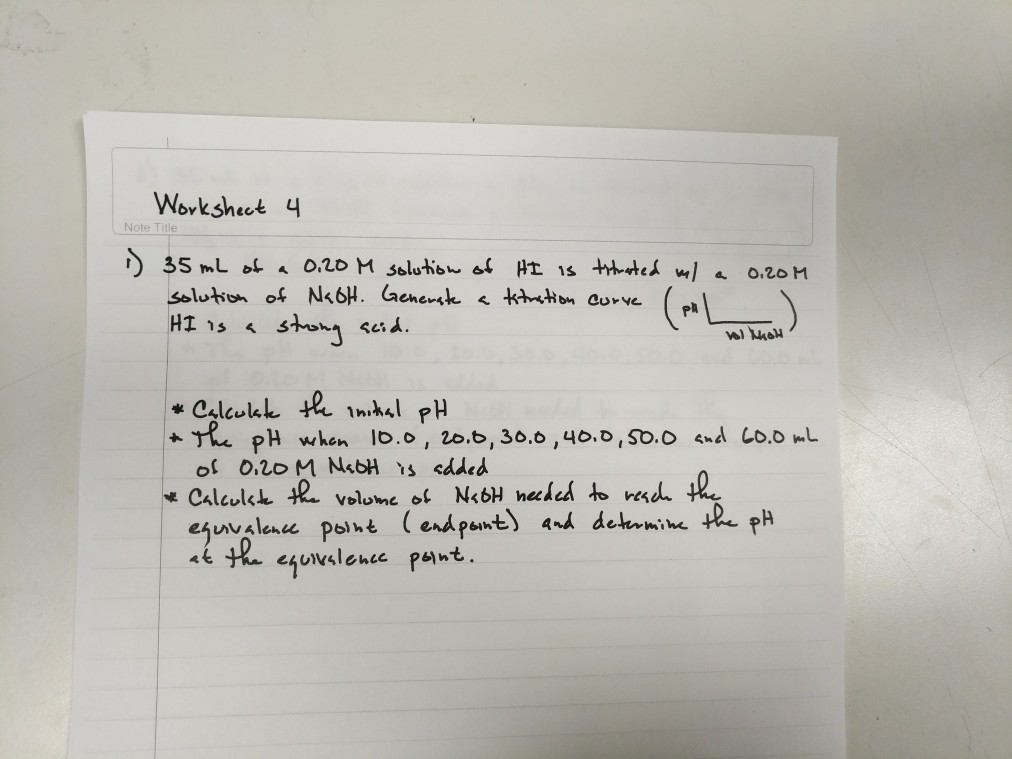 Worksheet 4
Note Title
1) 35 mL of a 0.20 M solution of HI is titrated w/ a 0.20 M
solution of NaOH. Generate a titration curve (pH vol NaOH)
HI is a strong acid.
* Calculate the initial pH
* The pH when 10.0, 20.0, 30.0, 40.0, 50.0 and 60.0 mL
of 0.20 M NaOH is added
* Calculate the volume of NaOH needed to reach the
equivalence point (endpoint) and determine the pH
at the equivalence point.